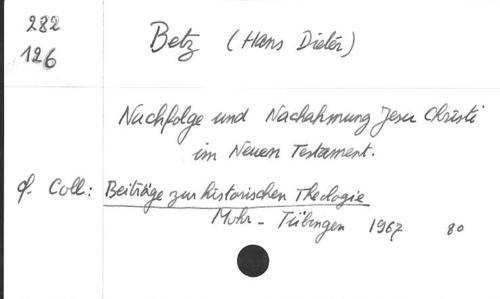 282
126
Betz (Hans Dieter)
Nachfolge und Nachahmung Jesu Christi
im Neuen Testament.
cf. Coll: Beiträge zur historischen Theologie
Mohr - Tübingen 1967 80